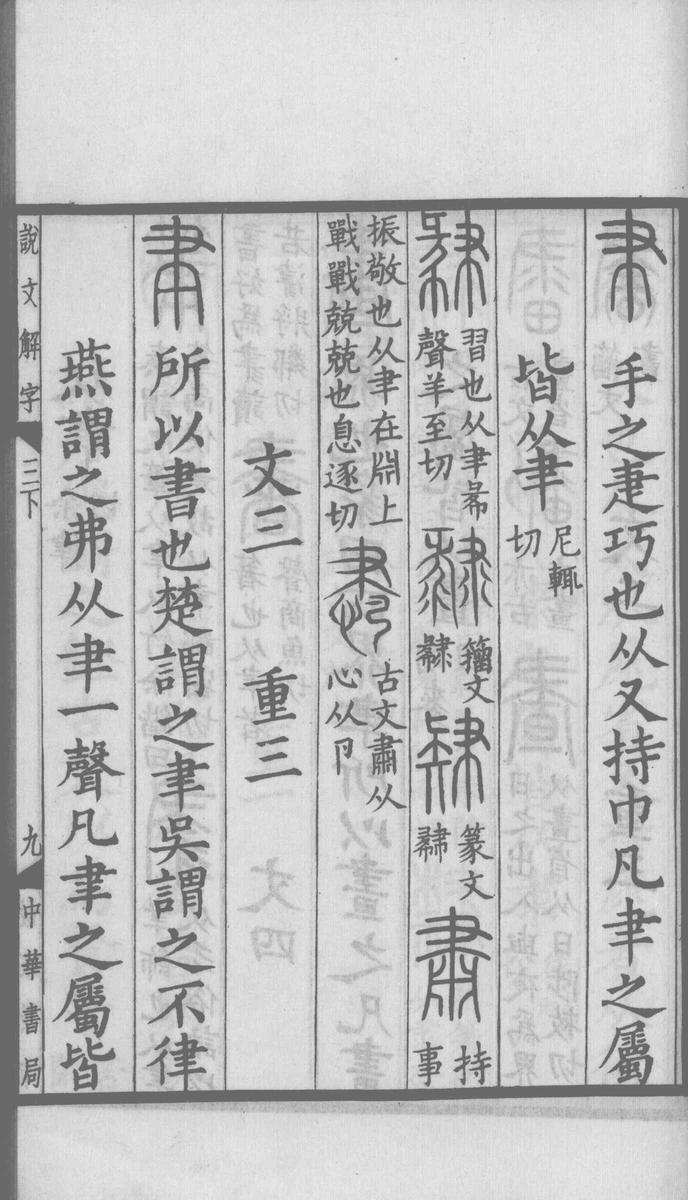 𦘒手之疌巧也从又持巾凡𦘒之屬
皆从𦘒尼輒切
𢑴習也从𦘒㣇聲羊至切 籒文𢑴 篆文𢑴 肅持事
振敬也从𦘒在𣶒上戰戰兢兢也息逐切 古文肅从心从卪
文三 重三
聿所以書也楚謂之聿吳謂之不律
燕謂之弗从聿一聲凡聿之屬皆
說文解字 三下 九 中華書局